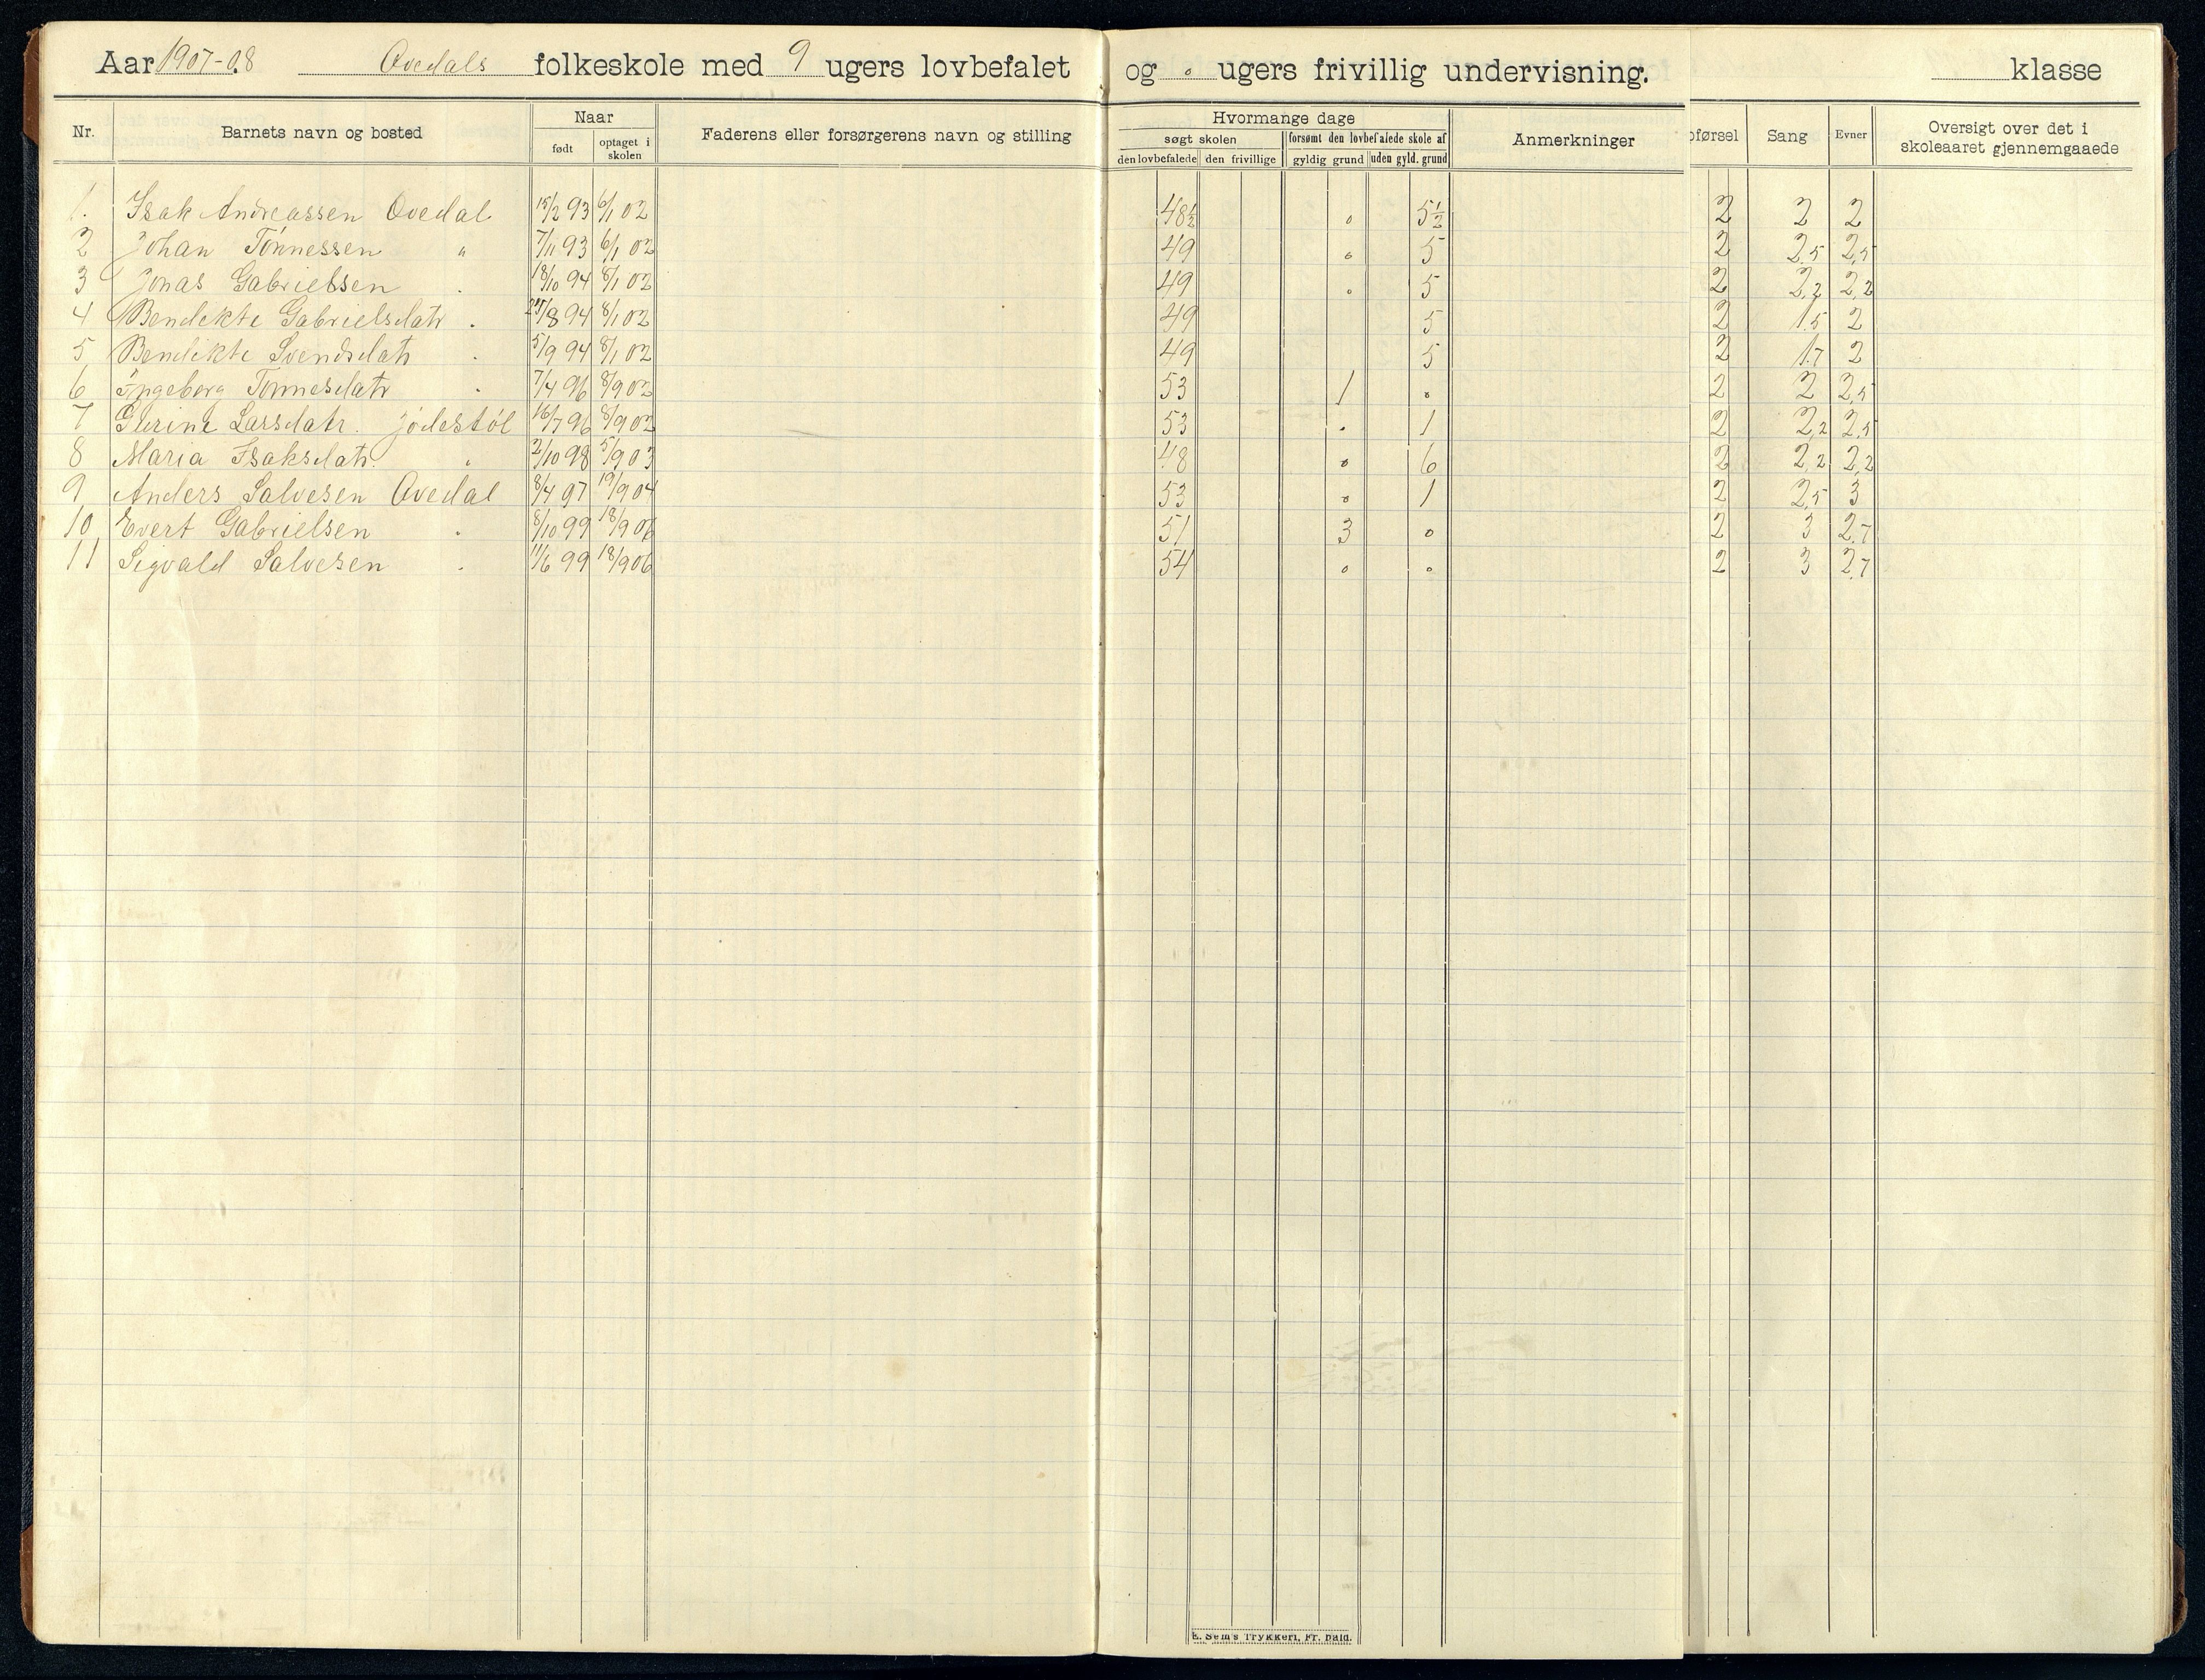 Aar 1907-08 Ovedals folkeskole med 9 ugers lovbefalet og 0 ugers frivillig undervisning. klasse
Nr. Barnets navn og bosted Naar født optaget i skolen Faderens eller forsørgerens navn og stilling Hvormange dage søgt skolen den lovbefalede den frivillige forsømt den lovbefalede skole af gyldig grund uden gyld. grund Anmerkninger oførsel Sang Evner Oversigt over det i skoleaaret gjennemgaaede
1. Isak Andreassen Ovedal 15/2 93 6/1 02 48½ 0 5½ 2 2 2
2 Johan Tönnessen " 7/11 93 6/1 02 49 0 5 2 2,5 2,5
3 Jonas Gabrielsen . 18/10 94 8/1 02 49 0 5 2 2,2 2,2
4 Bendikte Gabrielsdatr . 25/8 94 8/1 02 49 5 2 1,5 2
5 Bendikte Svendsdatr . 5/9 94 8/1 02 49 5 2 1,7 2
6 Ingeborg Tönnesdatr . 7/4 96 8/9 02 53 1 0 2 2 2,5
7 Larsdatr. Jödestöl 16/7 96 8/9 02 53 0 1 2 2,2 2,5
8 Maria Isaksdatr. " 2/10 98 5/9 03 48 0 6 2 2,2 2,2
9 Anders Salvesen Ovedal 8/4 97 19/9 04 53 0 1 2 2,5 3
10 Evert Gabrielsen . 8/10 99 18/9 06 51 3 0 2 3 2,7
11 Sigvald Salvesen . 11/6 99 18/9 06 54 0 0 2 3 2,7
E. Sem's Trykkeri, Fr. hald.